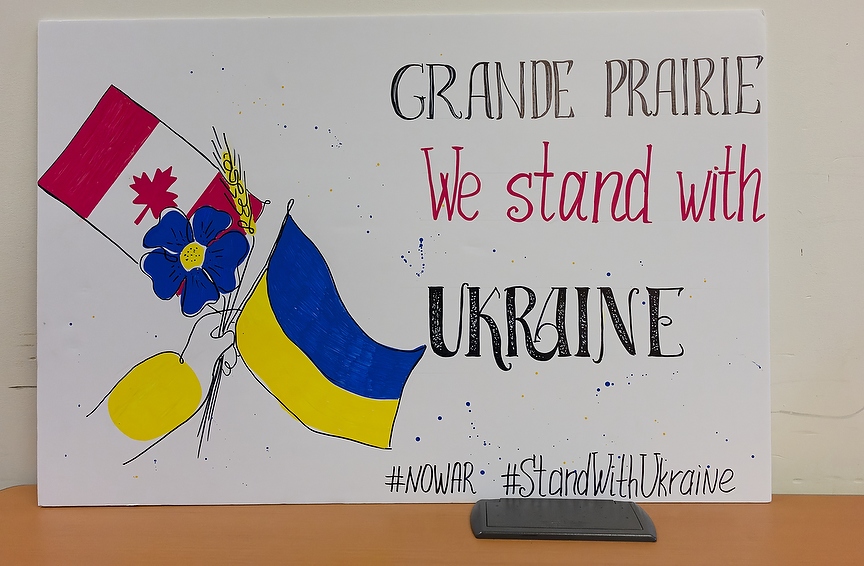 GRANDE PRAIRIE
We stand with
UKRAINE
#NOWAR #StandWithUkraine